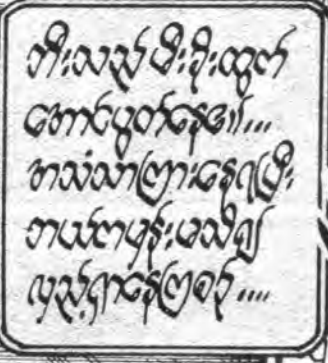 ဘီးသည် မီးခိုးထွက်
အောင်ပွတ်နေ၏...
အသံသာကြားနေရပြီး
ဘယ်ကမှန်းမသိ၍
လှည့်ရှာနေကြစဉ်....